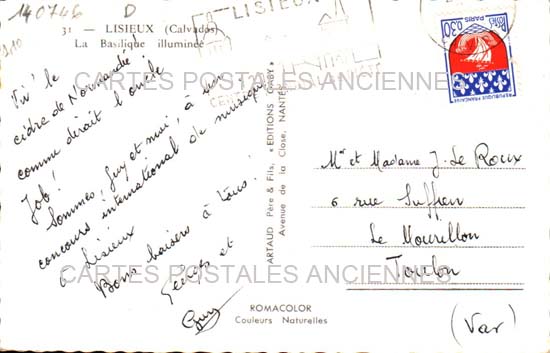 140746 D
31 — LISIEUX (Calvados)
La Basilique illuminée
LISIEUX
Viv' le
cidre de Normandie
comme dirait l'oncle
Job!
Sommes, Guy et moi, à un
concours international de musique
à Lisieux
Bons baisers à tous!
et
Guy
ARTAUD Père & Fils, «EDITIONS GABY»
Avenue de la Close, NANTES
ROMACOLOR
Couleurs Naturelles
POSTES
0,30
PARIS
REPUBLIQUE FRANÇAISE
Mr et Madame J. Le Roux
6 rue Suffren
Le Mourillon
Toulon
(Var)
CARTES POSTALES ANCIENNES
CARTES POSTALES ANCIENNES